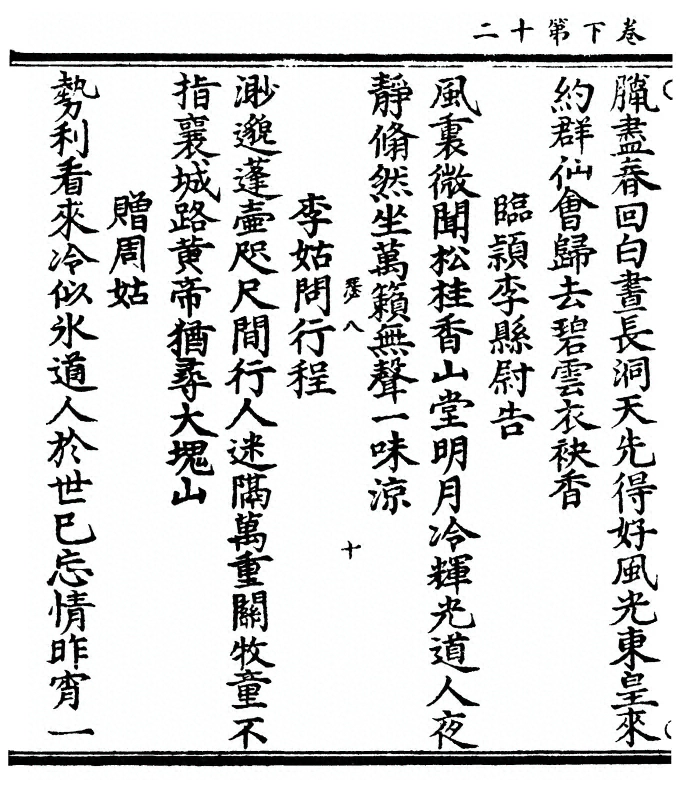 卷下第十二
臘盡春回白晝長洞天先得好風光東皇來
約群仙會歸去碧雲衣袂香
臨潁李縣尉告
風裏微聞松桂香山堂明月冷輝光道人夜
靜翛然坐萬籟無聲一味涼
八
十
李姑問行程
渺邈蓬壺咫尺間行人迷隔萬重關牧童不
指襄城路黃帝猶尋大塊山
贈周姑
勢利看來冷似氷道人於世已忘情昨宵一